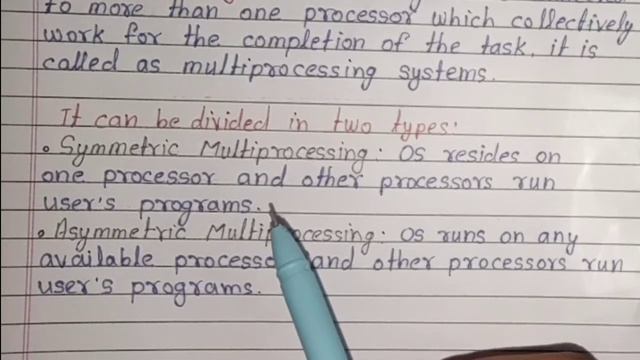 to more than one processor which collectively
work for the completion of the task, it is
called as multiprocessing systems.
It can be divided in two types:
• Symmetric Multiprocessing: OS resides on
one processor and other processors run
user's programs.
• Asymmetric Multiprocessing: OS runs on any
available processo and other processors run
user's programs.